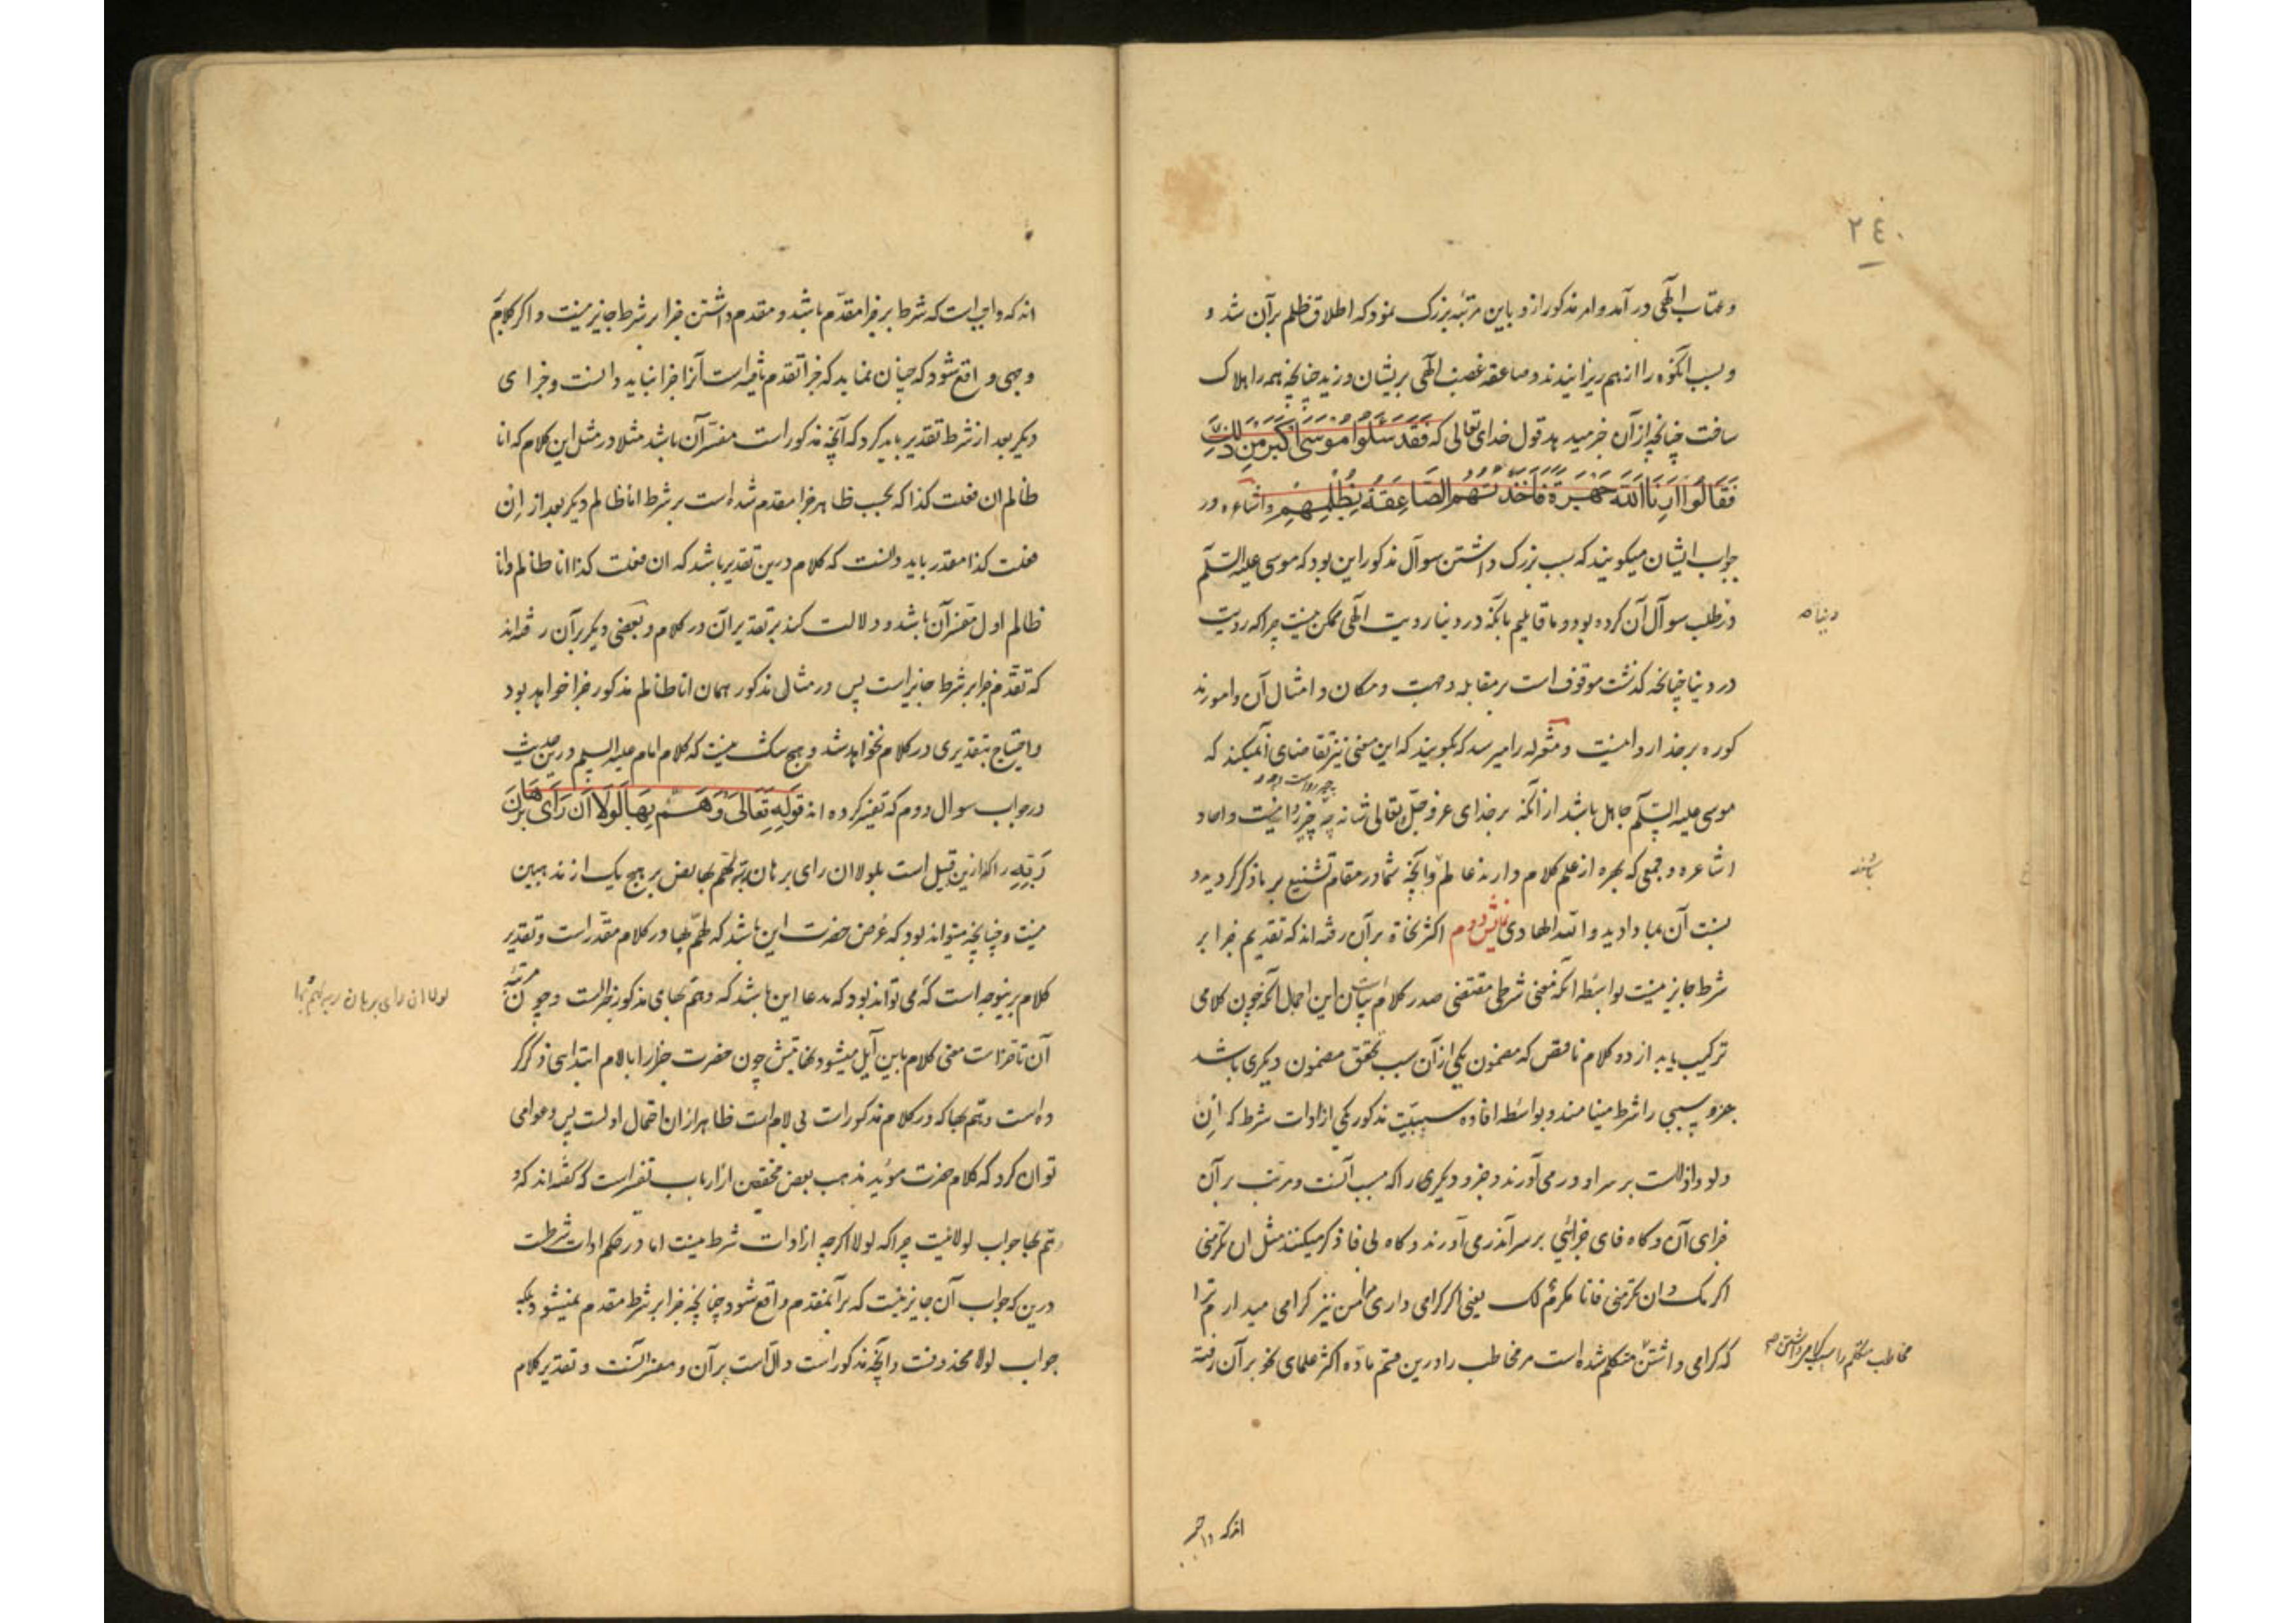 ٢٤٠
و عتاب الٓهی در آمد و امر مذکور از و باین مرتبهٔ بزرک نمود که اطلاق ظلم بر آن شد و
و بسبب انکوه را از هم ریزانیدند و صاعقهٔ غضب الٓهی بریشان وزید چنانچه همه را هلاک
ساخت چنانچه از آن خبر میدهد قول خدای تعالی که فَقَدْ سَئَلُوا مُوسٰی اَکْبَرَ مِنْ ذٰلِکَ
فَقَالُوا اَرِنَا اللّٰهَ جَهْرَةً فَاَخَذَتْهُمُ الصَّاعِقَةُ بِظُلْمِهِمْ و اشاعره در
جواب ایشان میکویند که سبب بزرک داشتن سوآل مذکور این بود که موسی علیه السّلم
در طلب سوآل آن کرده بود و ما قایلیم بآنکه در دنیا رویت الٓهی ممکن نیست چرا که رویت
دنیا صه
در دنیا چنانچه کذشت موقوف است بر مقابله و جهت و مکان و امثال آن و امور مذ
کوره بر خدا روا نیست و معتزله را میرسد که بکویند که این معنی نیز تقاضای آنمیکند که
موسی علیه السّلم جاهل باشد از آنکه بر خدای عز و جلّ و تعالی شانه چه چیز روا نیست و احاد
اشاعره و جمعی که بهره از علم کلام دارند عالم و آنچه شما در مقام تشنیع بر ما ذکر کردید و
باشند
نسبت آن بما دادید و اللّه الهادی نمایش دوم اکثر نحاة بر آن رفته اند که تقدیم جزا بر
شرط جایز نیست بواسطه آنکه معنی شرطی مقتضی صدر کلام بیان این اجمال آنکه چون کلامی
ترکیب یابد از دو کلام ناقص که مضمون یکی از آن سبب تحقق مضمون دیکری باشد
جزو سببی را شرط مینامند و بواسطه افاده سببیّت مذکور یکی از ادات شرط که اِن
و لو و اذاست بر سر او در می آورند و جزو دیکری را که مسبب آنست و مرتب بر آن
جزای آن و کاه فای جزائی بر سر آن در می آورند و کاه بی فا ذکر میکنند مثل ان تکرمنی
اکرمک و ان تکرمنی فانا مکرم لک یعنی اکر کرامی داری مرا من نیز کرامی میدارم ترا
که کرامی داشتن متکلم شده است مر مخاطب را درین قسم مادّه اکثر علمای نحو بر آن رفته
مخاطب متکلم را سبب کرامی داشتن صه
اند که واجب
اند که واجب است که شرط بر جزا مقدّم باشد و مقدم داشتن جزا بر شرط جایز نیست و اکر کلام بر
وجهی واقع شود که چنان نماید که جزا تقدم یافته است آنرا جزا نباید دانست و جزای
دیکر بعد از شرط تقدیر باید کرد که آنچه مذکور است مفسّر آن باشد مثلا در مثل این کلام که انا
ظالم ان فعلت کذا که بحسب ظاهر جزا مقدم شده است بر شرط انا ظالم دیکر بعد از اِن
فعلت کذا مقدر باید دانست که کلام درین تقدیر باشد که ان فعلت کذا انا ظالم و انا
ظالم اول مفسّر آن باشد و دلالت کند بر تقدیر آن در کلام و بعضی دیکر بر آن رفته اند
که تقدّم جزا بر شرط جایز است پس در مثال مذکور همان انا ظالم مذکور جزا خواهد بود
و احتیاج بتقدیری در کلام نخواهد شد و هیچ شک نیست که کلام امام علیه السلم درین حدیث
در جواب سوال دوم که تفسیر کرده اند قوله تعالی وَهَمَّ بِهَا لَوْلَا اَنْ رَاٰی بُرْهَانَ
رَبِّهِ را که ازین قبیل است بلولا ان رای برهان ربه لهمّ بها نص بر هیچ یک از مذهبین
نیست و چنانچه میتواند بود که غرض حضرت این باشد که لهمّ بها در کلام مقدّر است و تقدیر
کلام برینوجه است که می تواند بود که مدعا این باشد که و همّ بهای مذکور جزاست و چون مرتبهٔ
لولا ان رای برهان ربه لهم بها
آن تاخر است معنی کلام باین آیل میشود نهایتش چون حضرت جزا را با لام ابتدایی ذکر کر
ده است و همّ بها که در کلام مذکور است بی لام است ظاهر ازان احتمال اولست پس دعوای
توان کرد که کلام حضرت مؤید مذهب بعض محققین از ارباب تفسیر است که کفته اند که و
همّ بها جواب لولا نیست چرا که لولا اکرچه از ادات شرط نیست اما در حکم ادات شرطست
درین که جواب آن جایز نیست که بر آنمقدم واقع شود چنانچه جزا بر شرط مقدم نمیشود بلکه
جواب لولا محذوفست و آنچه مذکور است دالّ است بر آن و مفسر آنست و تقدیر کلام